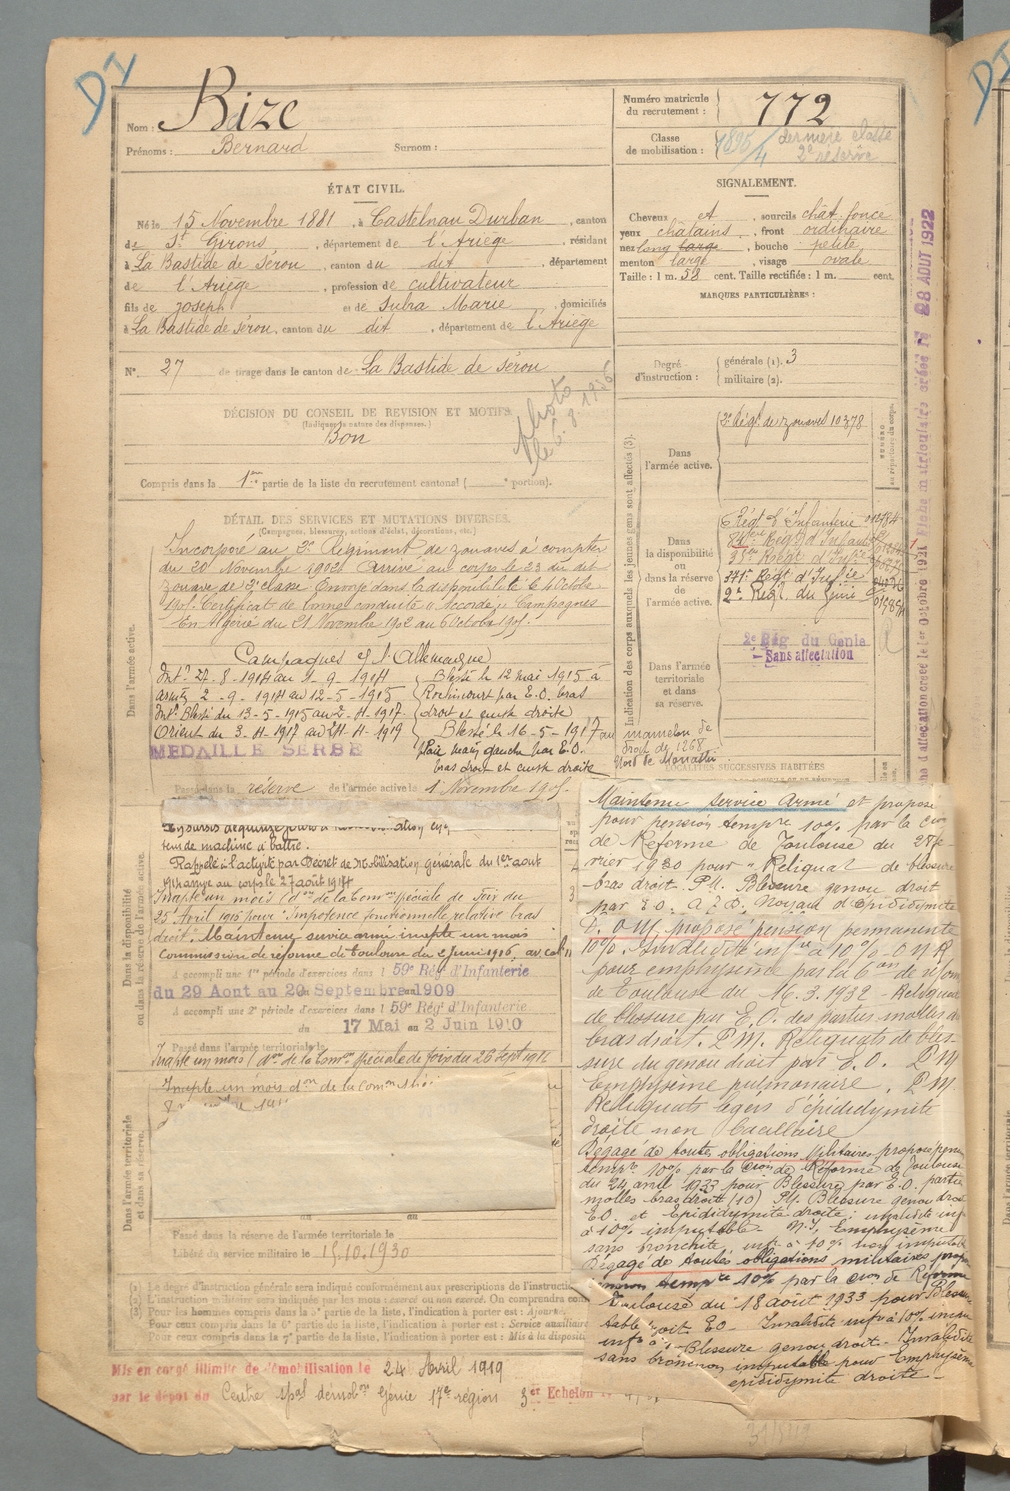 DI
Nom : Bize
Prénoms : Bernard Surnom :
Numéro matricule du recrutement : 772
Classe de mobilisation : 1896/4 dernière classe 2e réserve
ÉTAT CIVIL.
Né le 15 Novembre 1881, à Castelnau Durban, canton
de St Girons, département de l'Ariège, résidant
à La Bastide de Sérou, canton du dit, département
de l'Ariège, profession de cultivateur
fils de Joseph et de Subra Marie, domiciliés
à La Bastide de Sérou, canton du dit, département de l'Ariège
SIGNALEMENT.
Cheveux et, sourcils chat. foncé
yeux châtains, front ordinaire
nez long large, bouche petite
menton large, visage ovale
Taille : 1 m. 58 cent. Taille rectifiée : 1 m. cent.
MARQUES PARTICULIÈRES :
N° 27 de tirage dans le canton de La Bastide de Sérou
Degré d'instruction : générale (1). 3
militaire (2).
DÉCISION DU CONSEIL DE REVISION ET MOTIFS.
(Indiquer la nature des dispenses.)
Bon
photo
le 6.8.1936
Compris dans la 1ère partie de la liste du recrutement cantonal ( e portion).
Indication des corps auxquels les jeunes gens sont affectés (3).
Dans l'armée active.
2e Régt de zouaves 10378
NUMÉRO au répertoire du corps.
Dans la disponibilité ou dans la réserve de l'armée active.
Régt d'Infanterie
Régt d'Infanterie
Régt d'Infie
Régt d'Infie
2e Régt du Génie
Dans l'armée territoriale et dans sa réserve.
2e Rég du Génie
Sans affectation
créée le 28 AOUT 1922
DÉTAIL DES SERVICES ET MUTATIONS DIVERSES.
(Campagnes, blessures, actions d'éclat, décorations, etc.)
Dans l'armée active.
Incorporé au 2e Régiment de zouaves à compter
du 20 Novembre 1902. Arrivé au corps le 23 du dit
zouave de 2e classe. Envoyé dans la disponibilité le 4 Octobre
1905. Certificat de bonne conduite "Accordé". Campagnes
En Algérie du 21 Novembre 1902 au 6 Octobre 1905.
Campagnes c/ l'Allemagne
Intr 27-8-1914 au 1-9-1914
armées 2-9-1914 au 12-5-1915
Intr Blessé du 13-5-1915 au 2-11-1917
Orient du 3-11-1917 au 24-4-1919
Blessé le 12 mai 1915 à
Roclincourt par E.O. bras
droit et cuisse droite
Blessé le 16-5-1917 au
mamelon de
droit de 1268
Nord de Monastir
plaie main gauche par E.O.
bras droit et cuisse droite
MEDAILLE SERBE
LOCALITÉS SUCCESSIVES HABITÉES
Passé dans la réserve de l'armée active le 1 Novembre 1905.
Dans la disponibilité ou dans la réserve de l'armée active.
de machine à battre.
Rappelé à l'activité par Décret de Mobilisation générale du 1er août
1914 arrivé au corps le 27 août 1914
Inapte un mois (don de la Comon Spéciale de Foix du
25 Avril 1916 pour "Impotence fonctionnelle relative bras
droit". Maintenu service armé inapte un mois
Commission de réforme de Toulouse du 2 juin 1916
A accompli une 1re période d'exercices dans l 59e Rég d'Infanterie
du 29 Aout au 20 Septembre 1909
A accompli une 2e période d'exercices dans l 59e Rég d'Infanterie
du 17 Mai au 2 Juin 1910
Passé dans l'armée territoriale le
Inapte un mois (don de la Comon spéciale de Foix du 26 Sept 1916
Dans l'armée territoriale et dans sa réserve.
Inapte un mois don de la Comon
au au
Passé dans la réserve de l'armée territoriale le
Libéré du service militaire le 15.10.1930
Maintenu Service Armé et proposé
pour pension tempre 10% par la Cion
de Réforme de Toulouse du
1920 pour "Reliquat de blessure
bras droit. P.M. Blessure genou droit
par E.O. Noyau d'épididymite
proposé pension permanente
10%. Invalidité infre à 10%
pour emphysème par la 6e on de réfor
de Toulouse du 16.3.1932 - Reliquat
de blessure par E.O. des parties molles du
bras droit. P.M. Reliquats de bles-
sure du genou droit par E.O. P.M.
Emphysème pulmonaire. P.M.
Reliquats légers d'épididymite
droite non bacillaire
Dégagé de toutes obligations Militaires proposé pension
tempre 10% par la Cion de Réforme de Toulouse
du 24 avril 1933 pour Blessure par E.O. parties
molles bras droit (10) P.M. Blessure genou droit
E.O. et Epididymite droite ; invalidité inf
à 10% imputable - Emphysème
sans bronchite, inf. à 10% non imputable
Dégagé de toutes obligations militaires
tempre 10% par la Cion de Réforme
Toulouse du 18 août 1933 pour Blessure
droit EO - Invalidité infre à 10%
Blessure genou droit. Invalidité
imputable pour Emphysème
épididymite droite -
(1) Le degré d'instruction générale sera indiqué conformément aux prescriptions de l'instructi
L'instruction militaire sera indiquée par les mots : exercé ou non exercé. On comprendra
Pour les hommes compris dans la 5e partie de la liste, l'indication à porter est : Ajourné.
Pour ceux compris dans la 6e partie de la liste, l'indication à porter est : Service auxiliaire
Pour ceux compris dans la 7e partie de la liste, l'indication à porter est : Mis à la dispositi
Mis en congé illimité de démobilisation le 24 Avril 1919
par le dépôt du Centre spal démobon Génie 17e région 3er Echelon